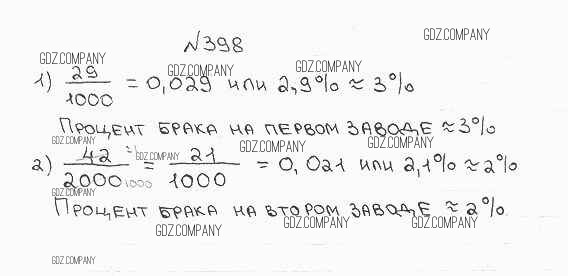 №398
GDZ.COMPANY
GDZ.COMPANY
GDZ.COMPANY
GDZ.COMPANY
1) 29/1000 = 0,029 или 2,9% ≈ 3%
Процент брака на первом заводе ≈ 3%
GDZ.COMPANY
GDZ.COMPANY
GDZ.COMPANY
GDZ.COMPANY
2) 42/2000 21/1000 = 21/1000 = 0,021 или 2,1% ≈ 2%
GDZ.COMPANY
Процент брака на втором заводе ≈ 2%
GDZ.COMPANY
GDZ.COMPANY
GDZ.COMPANY
GDZ.COMPANY